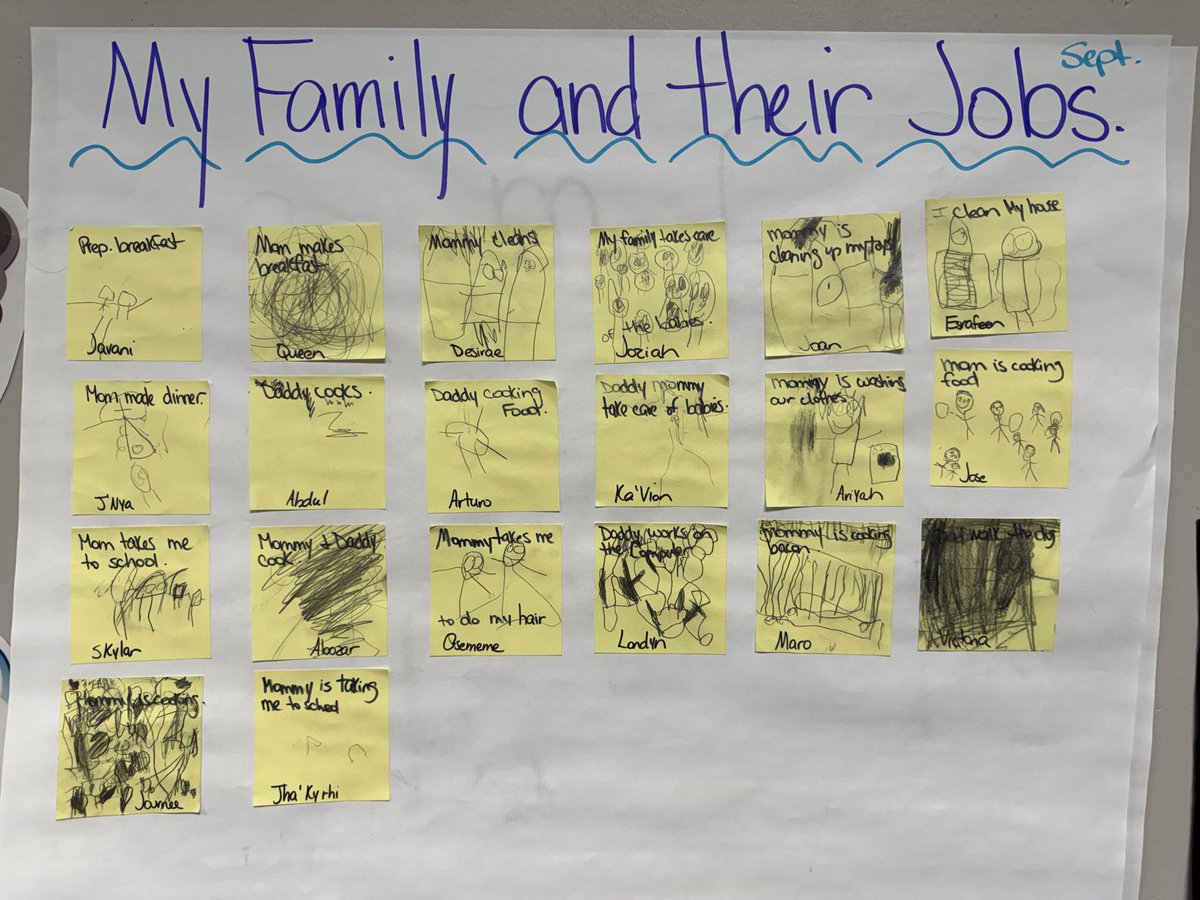 My Family and their Jobs.
Sept.
Prep. breakfast
Javani
Mom makes
breakfast
Queen
Mommy cleans
Desirae
My family takes care
of the babies.
Joziah
mommy is
cleaning up my toys
Joan
I clean My house
Esrafeen
Mom made dinner.
J'Nya
Daddy cooks.
Abdul
Daddy cooking
Food.
Arturo
Daddy mommy
take care of babies.
Ka'Vion
mommy is washing
our clothes
Ariyah
mom is cooking
food
Jose
Mom takes me
to school.
Skylar
Mommy + Daddy
cook
Aboozar
Mommy takes me
to do my hair
Osememe
Daddy works on
the Computer
Londyn
mommy is cooking
bacon
Maro
walk the dog
Victoria
Mommy is cooking.
Mommy is taking
me to school
Jha'Kyrhi